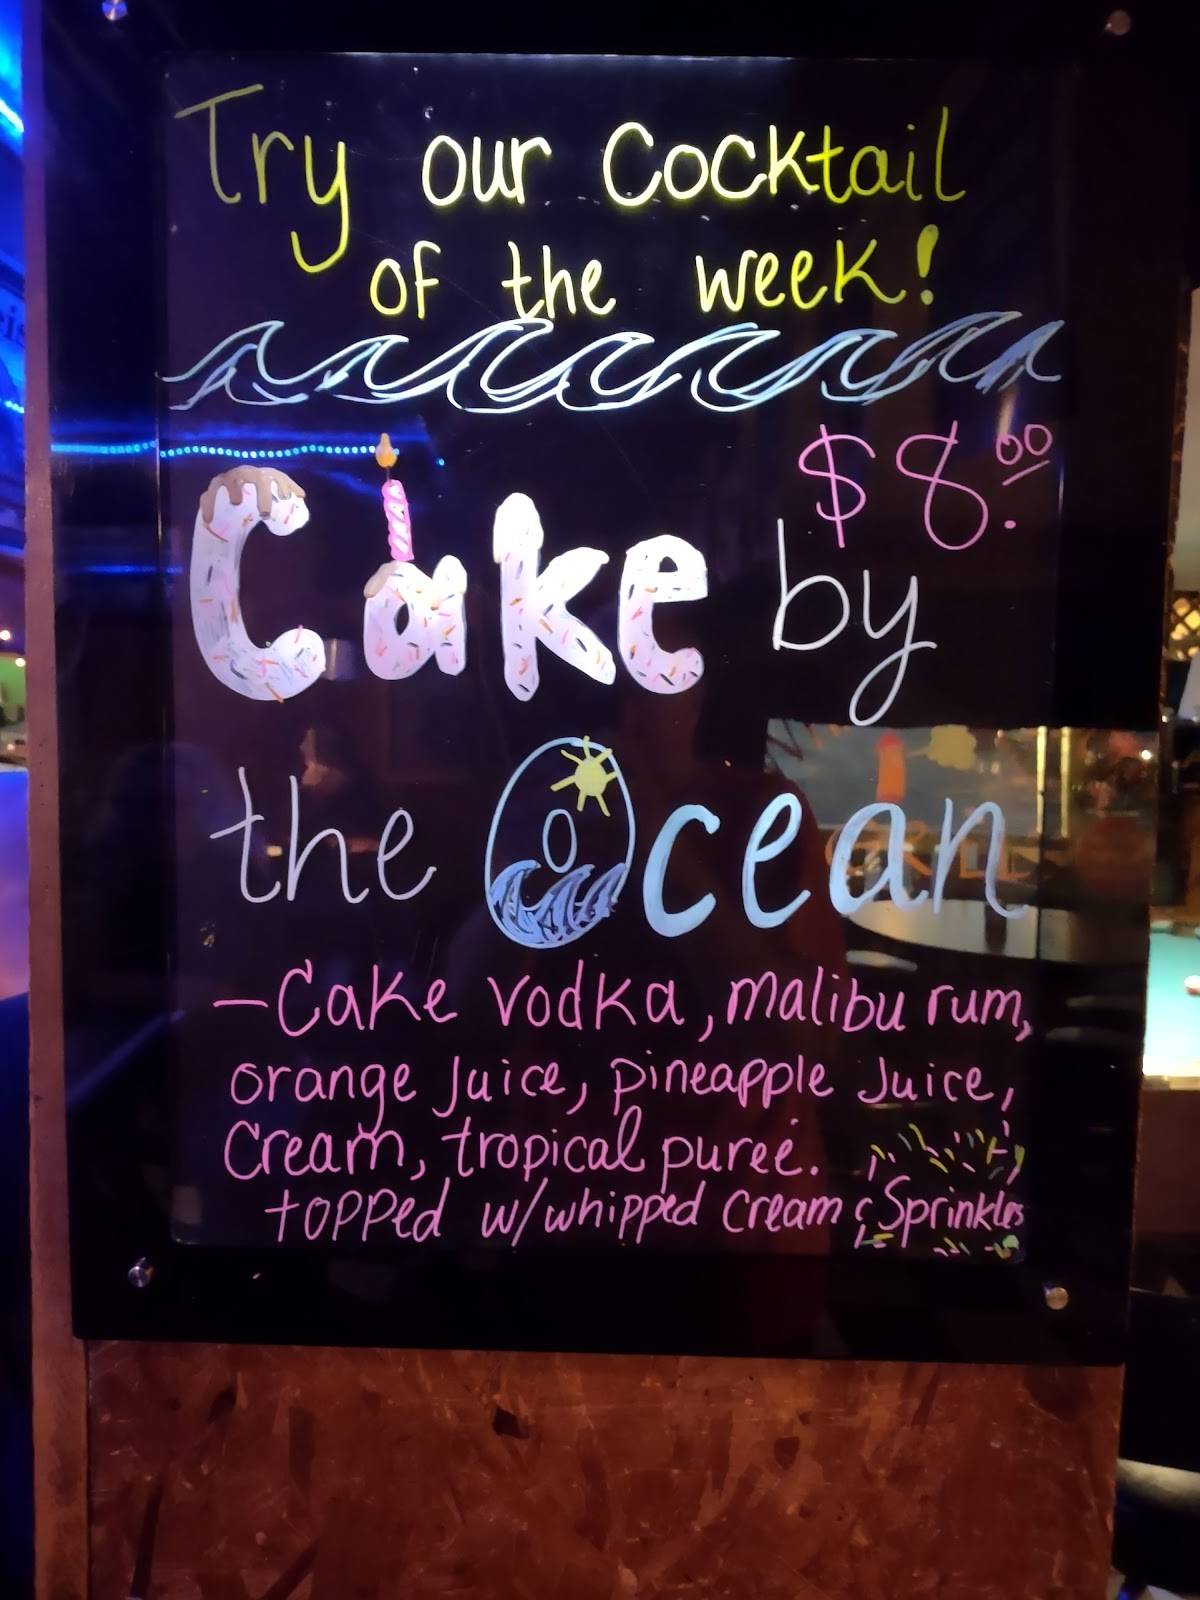 Try our Cocktail
of the week!
$8.00
Cake by
the Ocean
- Cake vodka, malibu rum,
orange juice, pineapple juice,
Cream, tropical puree.
topped w/whipped cream & Sprinkles
GRILL